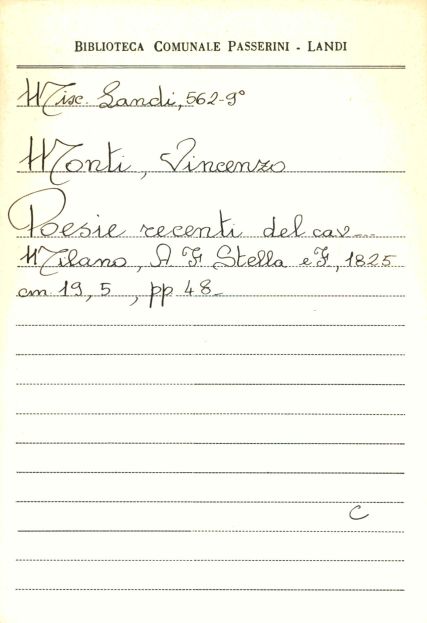 BIBLIOTECA COMUNALE PASSERINI - LANDI
Misc. Landi, 562-9°
Monti, Vincenzo
Poesie recenti del cav...
Milano, A F Stella e F, 1825
cm 19,5, pp 48_
C